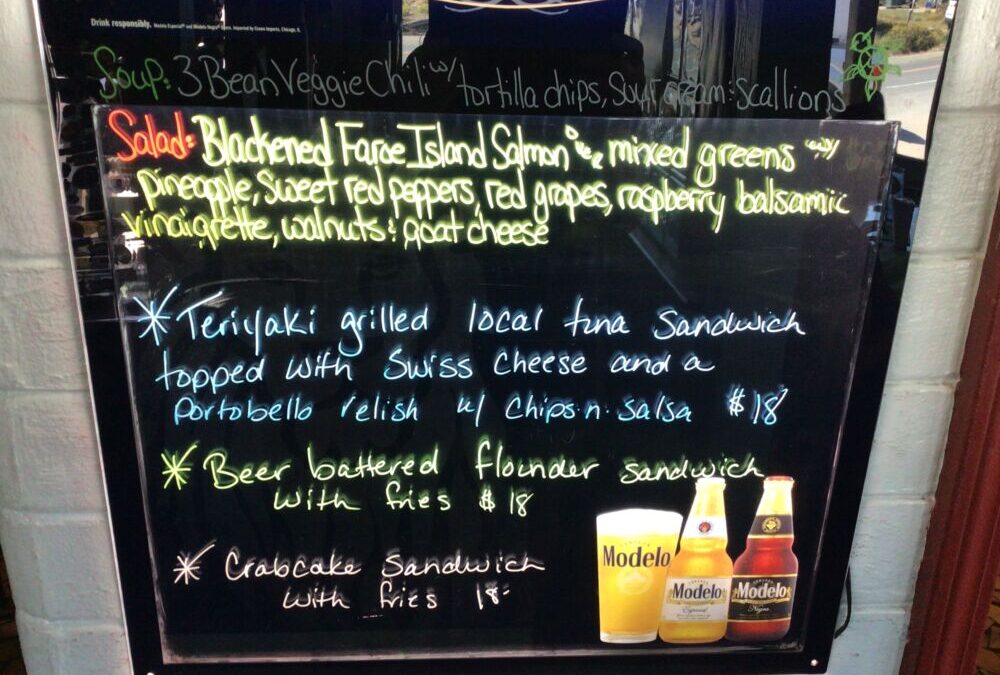 Drink responsibly.
Soup: 3 Bean Veggie Chili w/ tortilla chips, Sour cream & Scallions
Salad: Blackened Faroe Island Salmon mixed greens w/
pineapple, Sweet red peppers, red grapes, raspberry balsamic
vinaigrette, walnuts & goat cheese
* Teriyaki grilled local tuna Sandwich
topped with Swiss Cheese and a
Portobello relish w/ Chips.n.Salsa $18
* Beer battered flounder sandwich
with fries $18
* Crabcake Sandwich
with fries 18-
Modelo
Modelo
Especial
Modelo
Negra